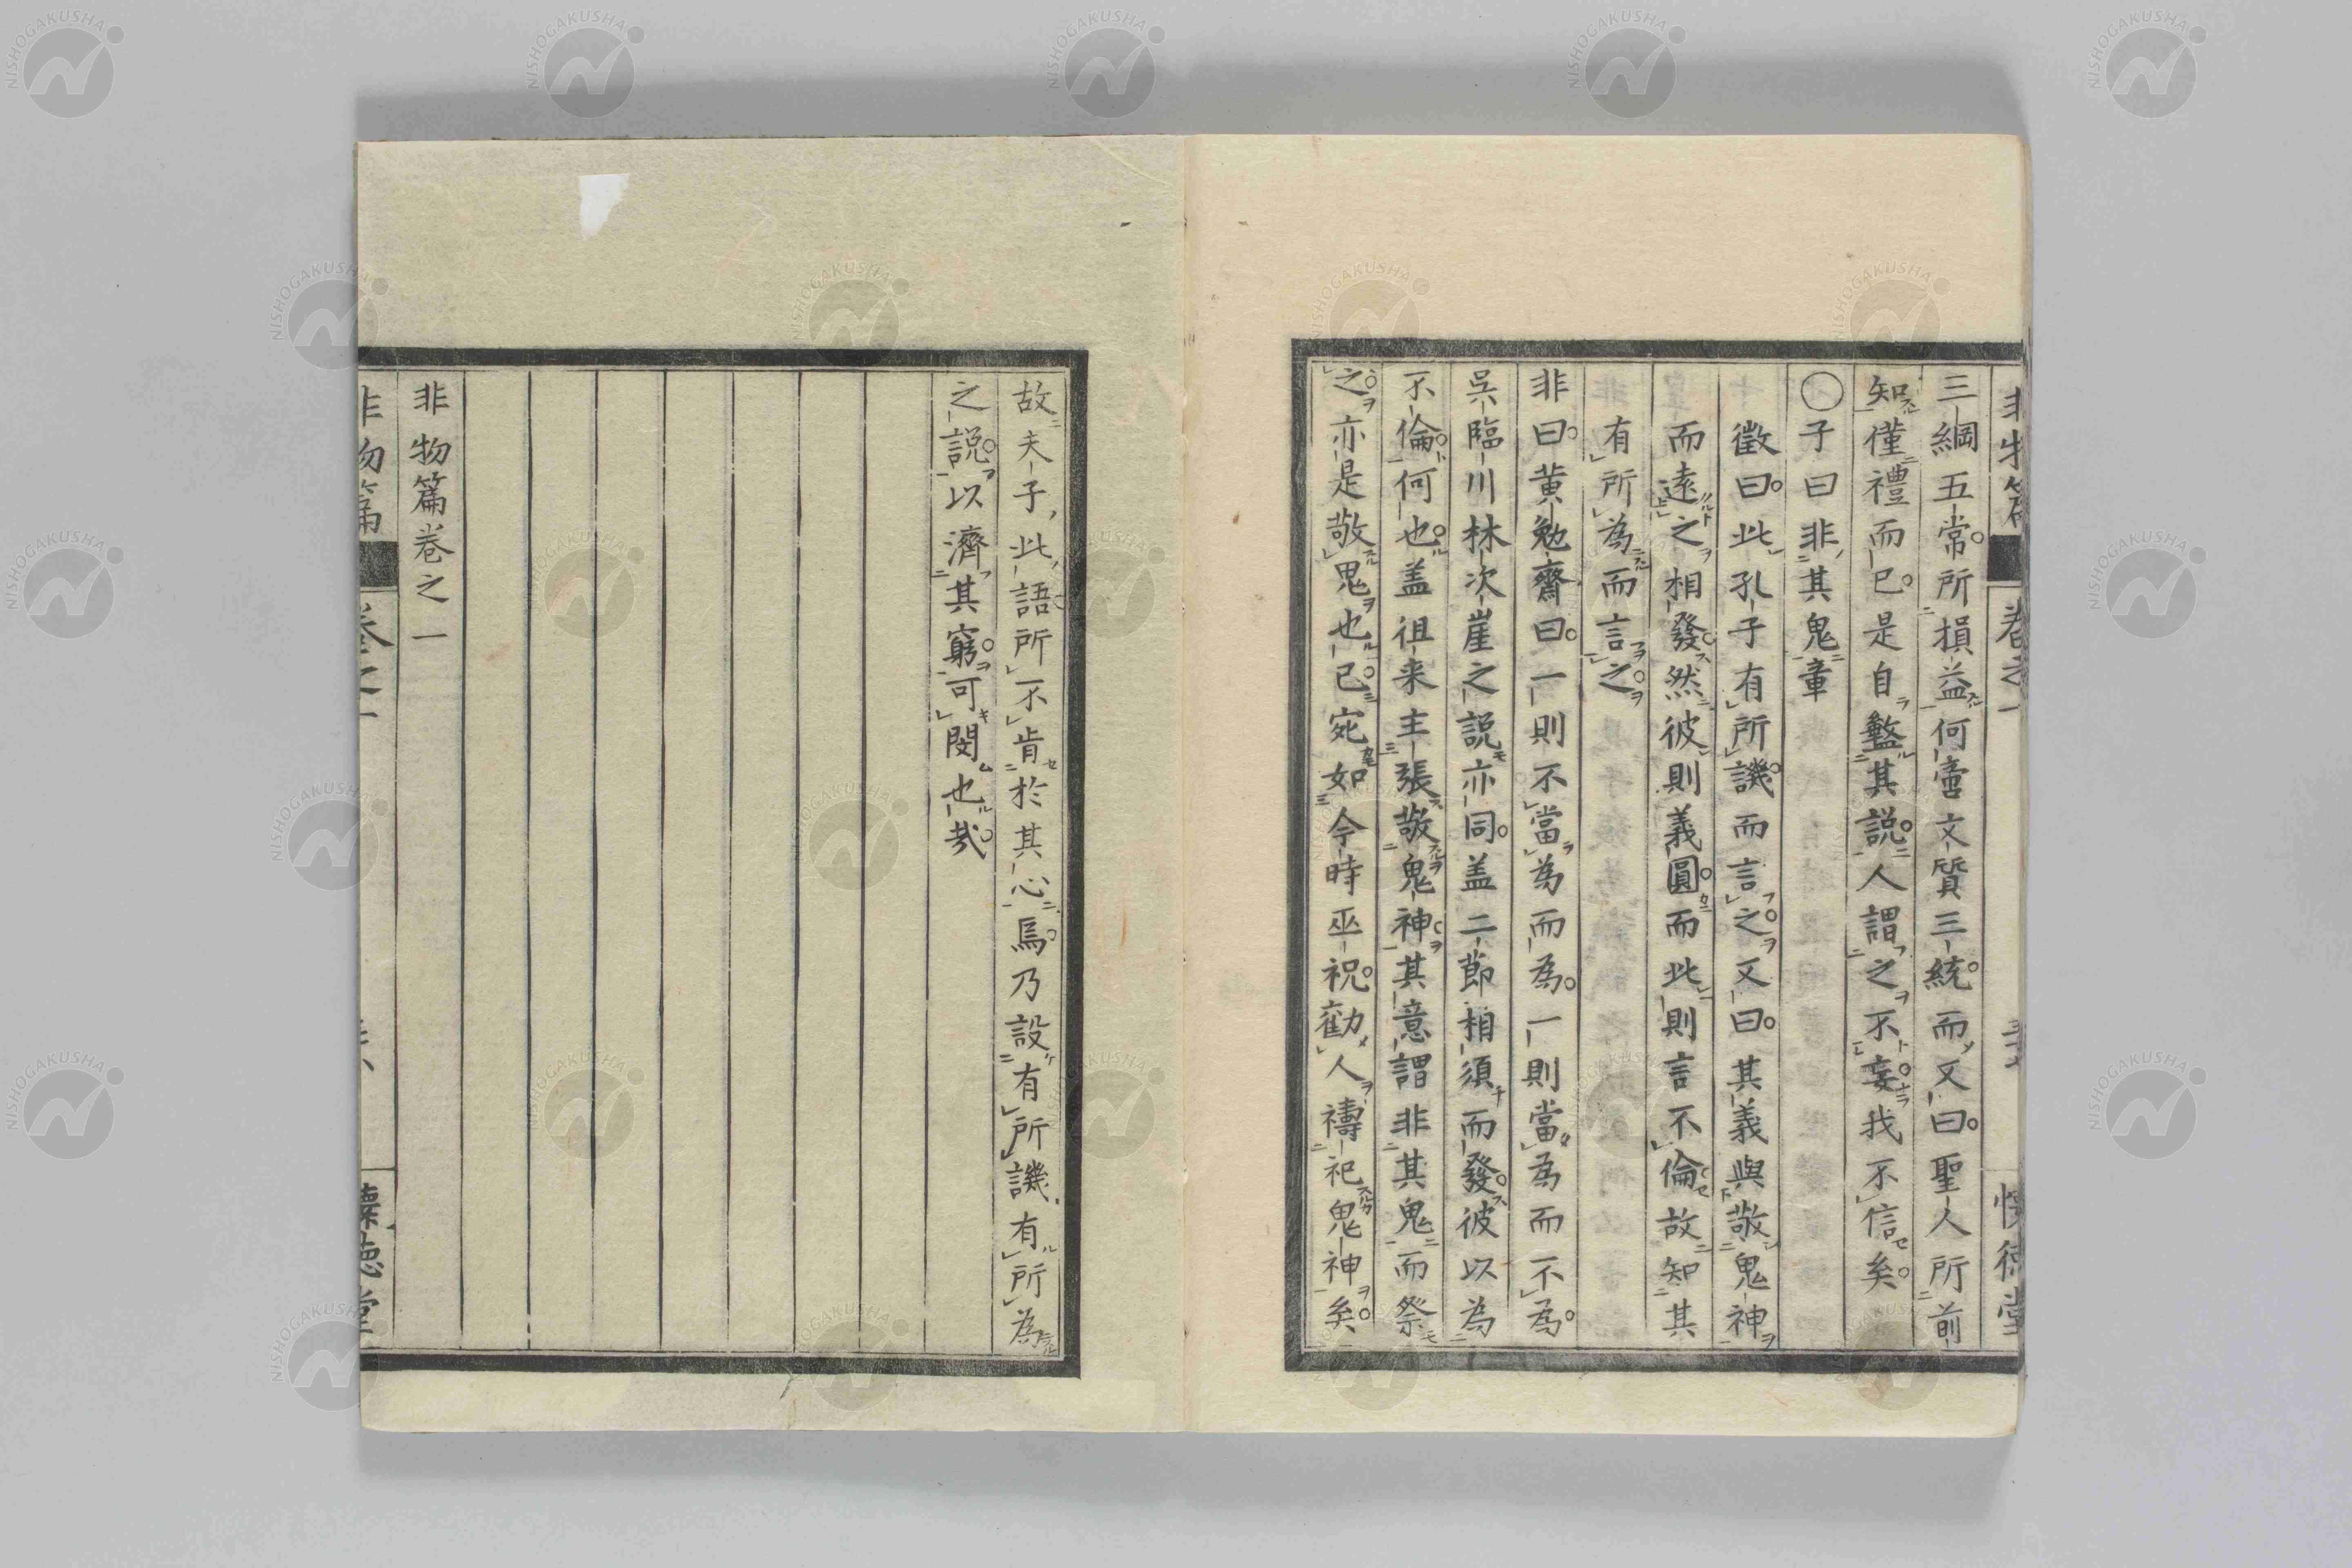 三綱五常所損益何啻文質三統而又曰聖人所前
知僅禮而已是自盭其說人謂之不妄我不信矣
○子曰非其鬼章
徵曰此孔子有所譏而言之又曰其義與敬鬼神
而遠之相發然彼則義圓而此則言不倫故知其
有所為而言之
非曰黃勉齋曰一則不當為而為一則當為而不為
吳臨川林次崖之説亦同盖二節相須而發彼以為
不倫何也盖徂来主張敬鬼神其意謂非其鬼而祭
之亦是敬鬼也已宛如今時巫祝勸人禱祀鬼神矣
故夫子此語所不肯於其心焉乃設有所譏有所為
之説以濟其窮可閔也哉
非物篇卷之一
非物篇 卷之一 懷德堂
NISHOGAKUSHA